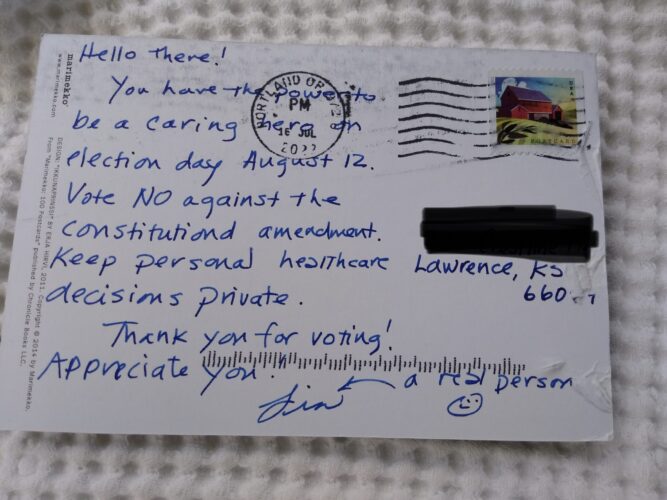 Hello there!
You have the power to
be a caring hero on
election day August 12.
Vote NO against the
constitutional amendment.
Keep personal healthcare
decisions private.
Thank you for voting!
Appreciate you!
a real person
Lawrence, KS
660
PORTLAND OR
PM
16 JUL
2022
USA
POSTCARD
marimekko
www.marimekko.com
DESIGN: "IKKUNAPRINSSI" BY ERJA HIRVI, 2011. Copyright © 2014 by Marimekko.
From "Marimekko: 100 Postcards" published by Chronicle Books LLC.